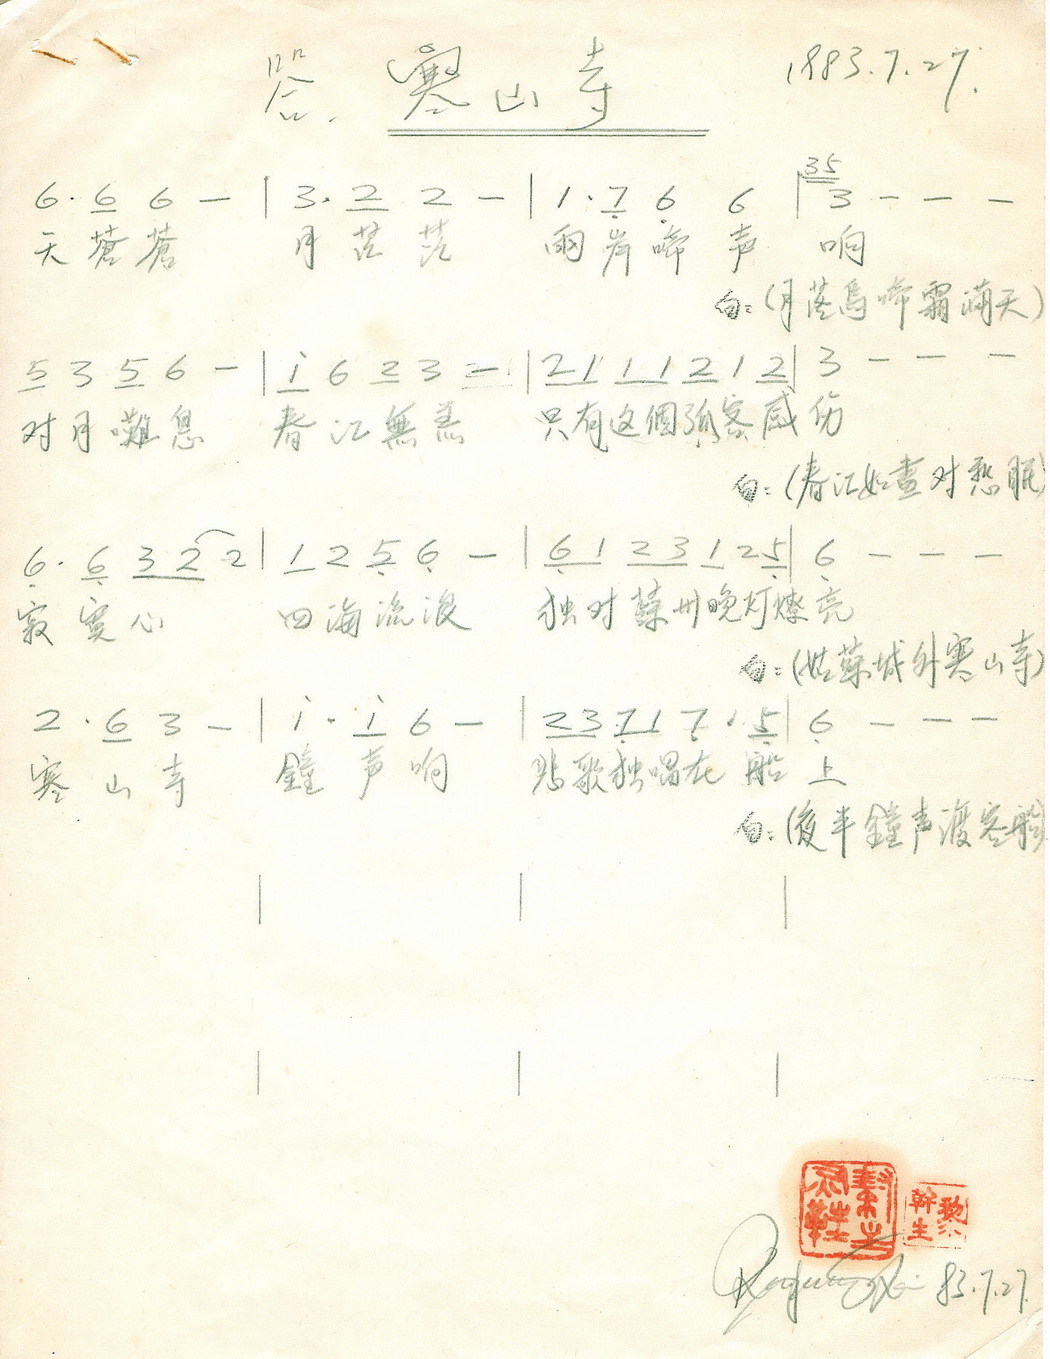 答. 寒山寺 1983.7.27.
6·6 6 — | 3·2 2 — | 1·7 6 6 | 35 3 — — —
天蒼蒼 月茫茫 兩岸啼声 响
白:(月落烏啼霜滿天)
5 3 5 6 — | i 6 2 3 — | 2 1 1 1 2 1 2 | 3 — — —
对月嘆息 春江無恙 只有这個孤客感伤
白:(春江如畫对愁眠)
6·6 3 2 2 | 1 2 5 6 — | 6 1 2 3 1 2 5 | 6 — — —
寂寞心 四海流浪 独对蘇州晚灯燎亮
白:(姑蘇城外寒山寺)
2·6 3 — | i·i 6 — | 2 3 7 1 7·5 | 6 — — —
寒山寺 鐘声响 悲歌独唱在船上
白:(夜半鐘声渡客船)
83.7.27.